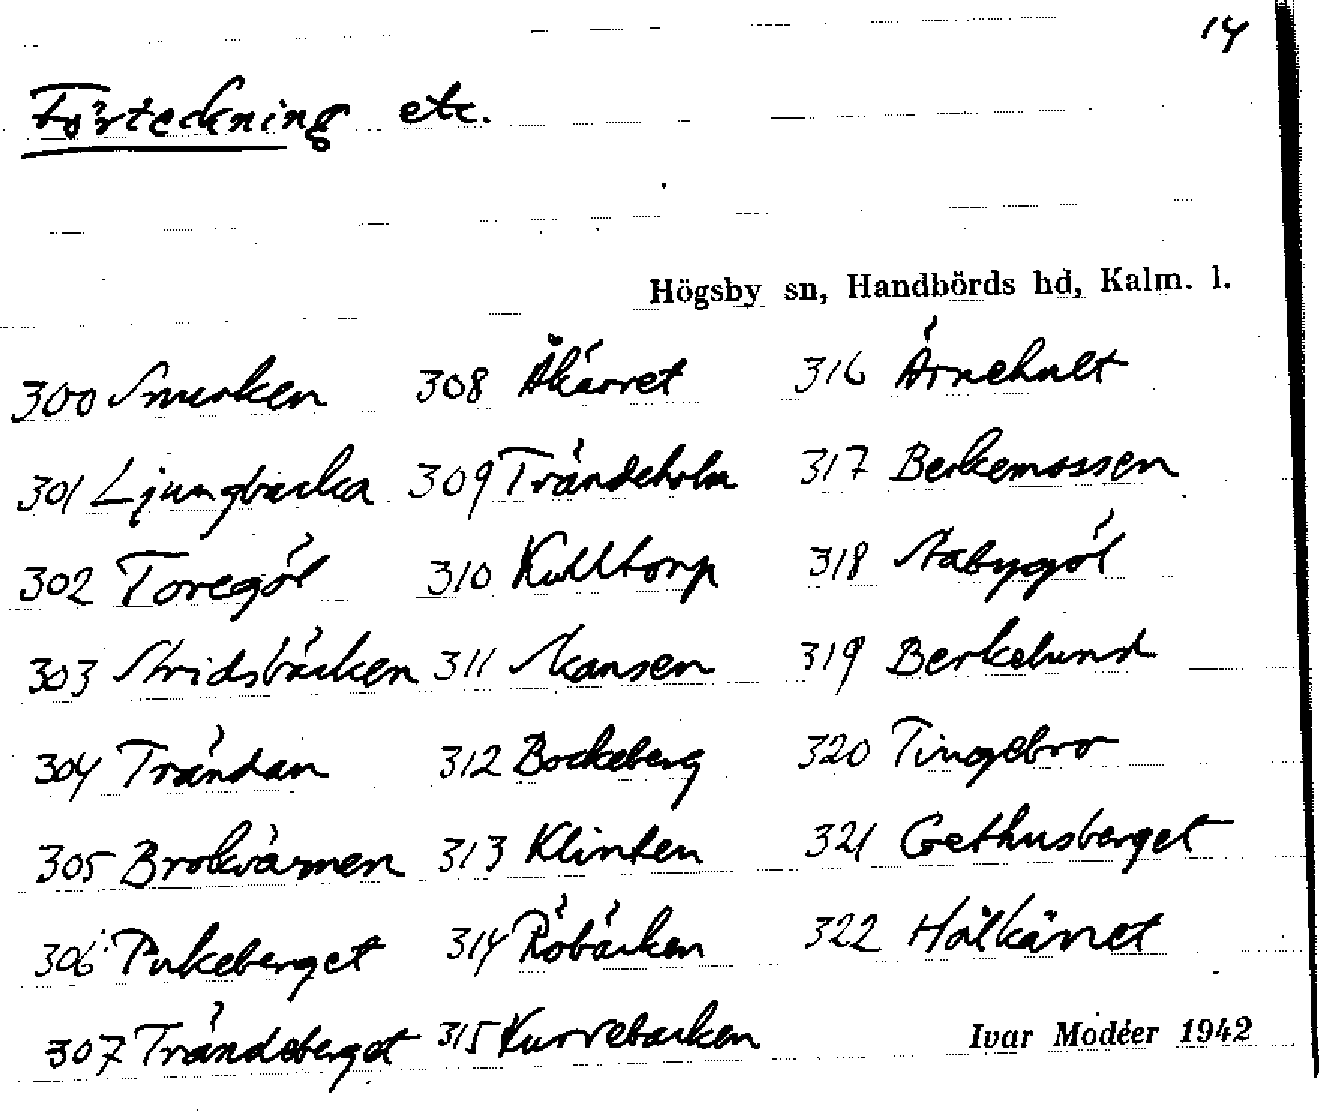 14
Förteckning etc.
Högsby sn, Handbörds hd, Kalm. l.
300 Smerken 308 Älkärret 316 Ärnehult
301 Ljungbacka 309 Trändeholm 317 Berkemossen
302 Toregöl 310 Kulltorp 318 Stabygöl
303 Stridsbäcken 311 Skansen 319 Berkelund
304 Trändan 312 Bockeberg 320 Tingebro
305 Brokvärnen 313 Klinten 321 Gethusberget
306 Pukeberget 314 Röbäcken 322 Hälkärret
307 Trändeberget 315 Kurrebacken
Ivar Modéer 1942